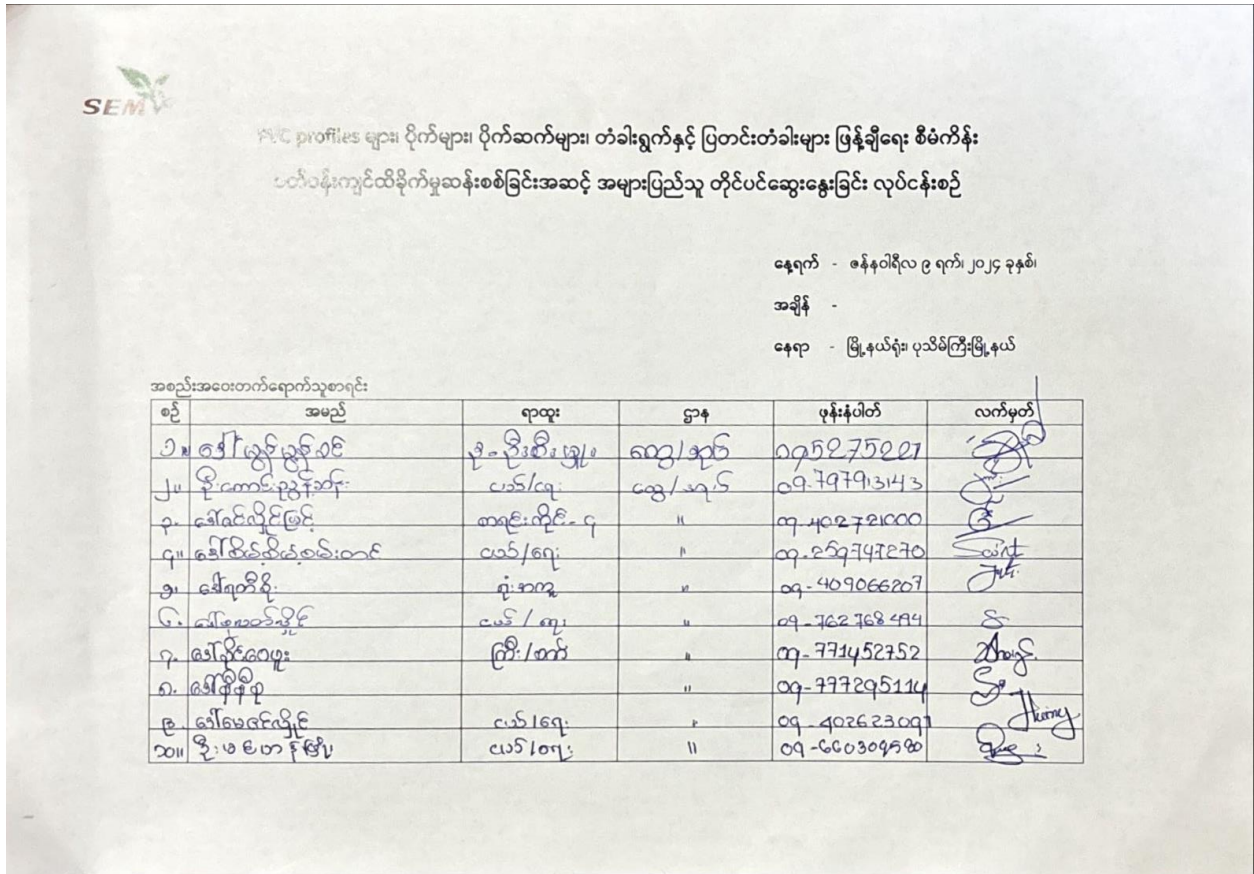 SEM
PVC profiles များ၊ ပိုက်များ၊ ပိုက်ဆက်များ၊ တံခါးရွက်နှင့် ပြတင်းတံခါးများ ဖြန့်ချီရေး စီမံကိန်း
ပတ်ဝန်းကျင်ထိခိုက်မှုဆန်းစစ်ခြင်းအဆင့် အများပြည်သူ တိုင်ပင်ဆွေးနွေးခြင်း လုပ်ငန်းစဉ်
နေ့ရက် - ဇန်နဝါရီလ ၉ ရက်၊ ၂၀၂၄ ခုနှစ်၊
အချိန် -
နေရာ - မြို့နယ်ရုံး၊ ပုသိမ်ကြီးမြို့နယ်
အစည်းအဝေးတက်ရောက်သူစာရင်း
စဉ် အမည် ရာထူး ဌာန ဖုန်းနံပါတ် လက်မှတ်
၁။ ဒေါ်မွန်မွန်ဝင် ဒု-ဦးစီးမှူး ထွေ/အုပ် 095275227
၂။ ထွေ/အုပ် 09-797913143
၃. ဒေါ်ဇင်လှိုင်မြင့် စာရင်းကိုင်-၄ " 09-402721000
၄။ ငယ်/ရေး " 09-259747270
၅. ဒေါ်ရတီစိုး ရုံးအကူ " 09-409066207
၆. ငယ်/ရေး " 09-762768494
၇. ဒေါ်ခိုင်ဝေဖူး ကြီး/စက် " 09-771452752
၈. ဒေါ်နီနီစု " 09-777295114
၉. ဒေါ်မေဇင်လှိုင် ငယ်/ရေး " 09-402623091 Hlaing
၁၀။ ငယ်/ရေး "